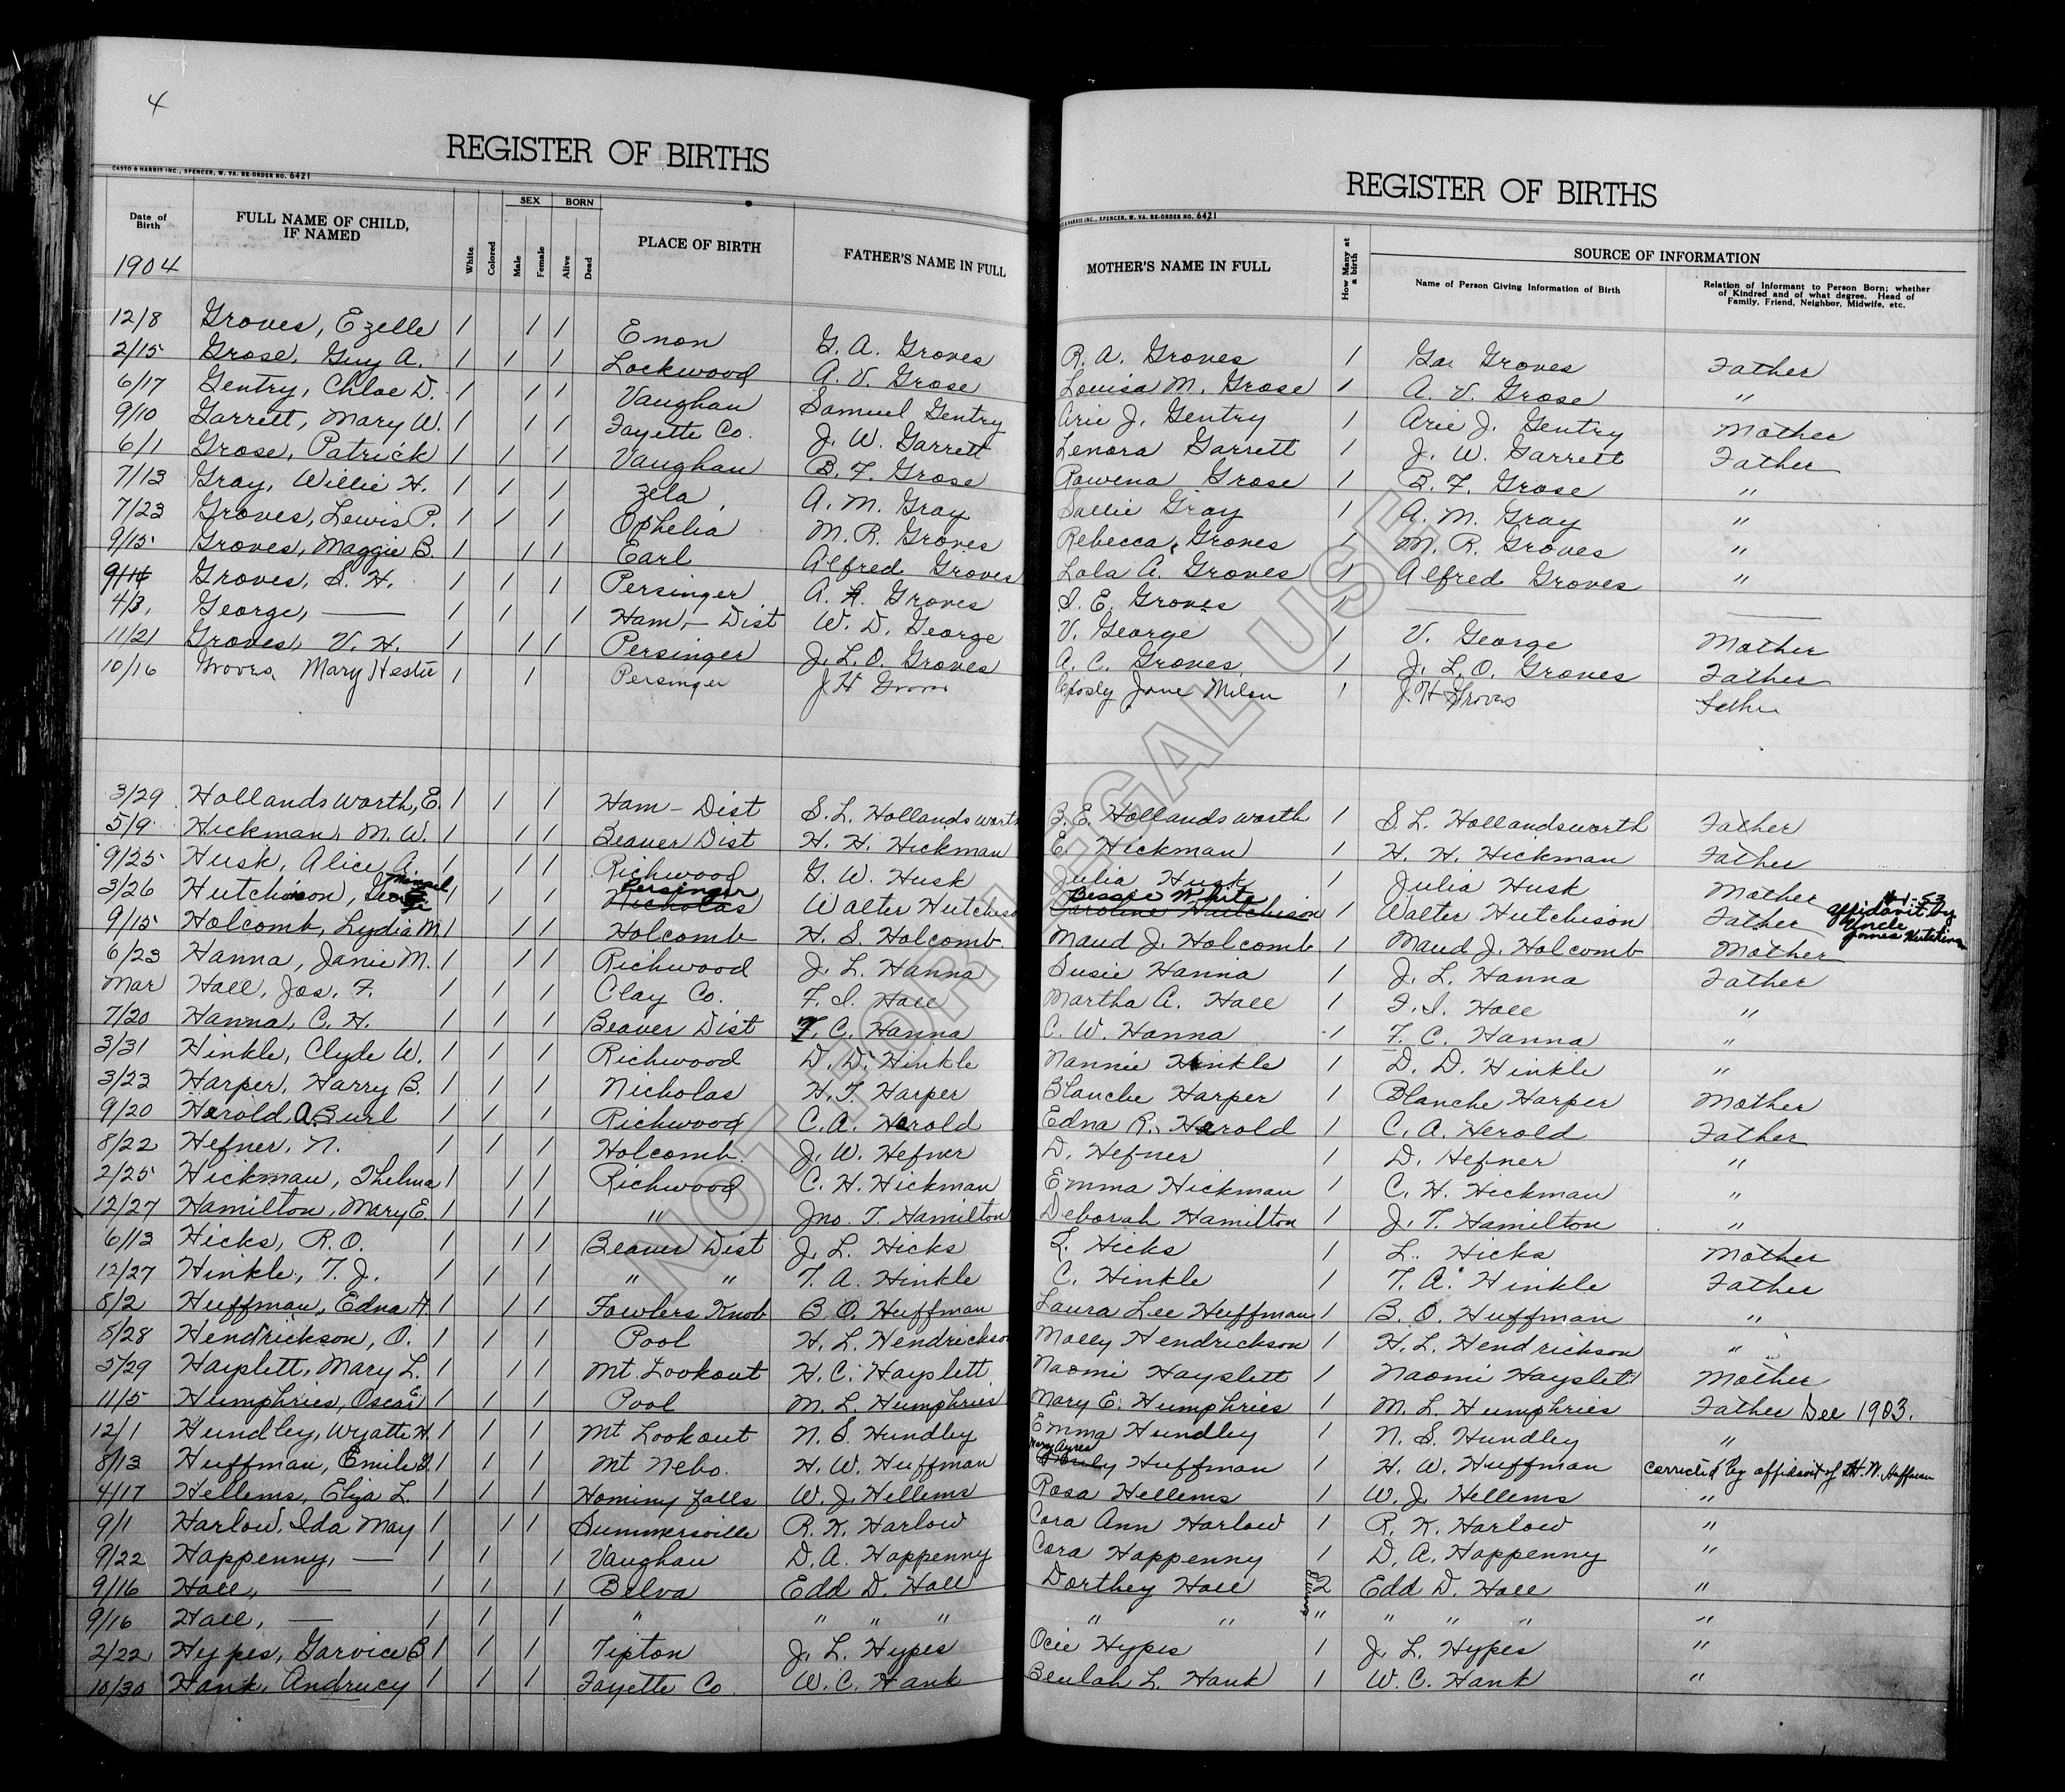 4
REGISTER OF BIRTHS
CASTO & HARRIS INC., SPENCER, W. VA. RE-ORDER NO. 6421
Date of Birth FULL NAME OF CHILD, IF NAMED White Colored SEX Male Female BORN Alive Dead PLACE OF BIRTH FATHER'S NAME IN FULL
1904
REGISTER OF BIRTHS
& HARRIS INC., SPENCER, W. VA. RE-ORDER NO. 6421
MOTHER'S NAME IN FULL How Many at a birth SOURCE OF INFORMATION
Name of Person Giving Information of Birth Relation of Informant to Person Born; whether of Kindred and of what degree. Head of Family, Friend, Neighbor, Midwife, etc.
12/8 Groves, Ezelle 1 1 1 Enon G. A. Groves R. A. Groves 1 Ga. Groves Father
2/15 Grose, Guy A. 1 1 1 Lockwood A. V. Grose Louisa M. Grose 1 A. V. Grose "
6/17 Gentry, Chloe D. 1 1 1 Vaughan Samuel Gentry Arie J. Gentry 1 Arie J. Gentry Mother
9/10 Garrett, Mary W. 1 1 1 Fayette Co. J. W. Garrett Lenora Garrett 1 J. W. Garrett Father
6/1 Grose, Patrick 1 1 1 Vaughan B. F. Grose Rowena Grose 1 B. F. Grose "
7/13 Gray, Willie H. 1 1 1 Zela A. M. Gray Sallie Gray 1 A. M. Gray "
7/23 Groves, Lewis P. 1 1 1 Ophelia M. R. Groves Rebecca Groves 1 M. R. Groves "
9/15 Groves, Maggie B. 1 1 1 Earl Alfred Groves Lola A. Groves 1 Alfred Groves "
9/14 Groves, S. H. 1 1 1 Persinger A. Groves S. E. Groves 1
4/3 George, — 1 1 1 Ham – Dist W. D. George V. George 1 V. George Mother
11/21 Groves, V. H. 1 1 1 Persinger J. L. O. Groves A. C. Groves 1 J. L. O. Groves Father
10/16 Groves Mary Hester 1 1 Persinger J H Groves Jane 1 J. H Groves Father
3/29 Hollandsworth, E. 1 1 1 Ham – Dist S. L. Hollandsworth B. E. Hollandsworth 1 S. L. Hollandsworth Father
5/9 Hickman, M. W. 1 1 1 Beaver Dist H. H. Hickman E. Hickman 1 H. H. Hickman Father
9/25 Husk, Alice A. 1 1 1 Richwood G. W. Husk Julia Husk 1 Julia Husk Mother
3/26 Hutchison, 1 1 1 Persinger Nicholas Walter Hutchison Bessie White Caroline Hutchison 1 Walter Hutchison Father 4-1-53 Affidavit by Uncle James Hutchison
9/15 Holcomb, Lydia M. 1 1 1 Holcomb H. S. Holcomb Maud J. Holcomb 1 Maud J. Holcomb Mother
6/23 Hanna, Janie M. 1 1 1 Richwood J. L. Hanna Susie Hanna 1 J. L. Hanna Father
Mar Hall, Jos. F. 1 1 1 Clay Co. F. I. Hall Martha A. Hall 1 F. I. Hall "
7/20 Hanna, C. H. 1 1 1 Beaver Dist F. C. Hanna C. W. Hanna 1 F. C. Hanna "
3/31 Hinkle, Clyde W. 1 1 1 Richwood D. D. Hinkle Nannie Hinkle 1 D. D. Hinkle "
3/23 Harper, Harry B. 1 1 1 Nicholas H. T. Harper Blanche Harper 1 Blanche Harper Mother
9/20 Harold, A. Burl 1 1 1 Richwood C. A. Harold Edna R. Harold 1 C. A. Herold Father
8/22 Hefner, N. 1 1 1 Holcomb. J. W. Hefner D. Hefner 1 D. Hefner "
2/25 Hickman, Thelma 1 1 1 Richwood C. H. Hickman Emma Hickman 1 C. H. Hickman "
12/27 Hamilton, Mary E. 1 1 1 " Jno. T. Hamilton Deborah Hamilton 1 J. T. Hamilton "
6/13 Hicks, R. O. 1 1 1 Beaver Dist J. L. Hicks L. Hicks 1 L. Hicks Mother
12/27 Hinkle, T. J. 1 1 1 " " T. A. Hinkle C. Hinkle 1 T. A. Hinkle Father
8/2 Huffman, Edna H. 1 1 1 Fowlers Knob B. O. Huffman Laura Lee Huffman 1 B. O. Huffman "
8/28 Hendrickson, O. 1 1 1 Pool H. L. Hendrickson Molly Hendrickson 1 H. L. Hendrickson "
5/29 Hayslett, Mary L. 1 1 1 Mt. Lookout H. C. Hayslett Naomi Hayslett 1 Naomi Hayslett Mother
11/5 Humphries, Oscar E. 1 1 1 Pool M. L. Humphries Mary E. Humphries 1 M. L. Humphries Father Dec 1903.
12/1 Hundley, Wyatte H. 1 1 1 Mt Lookout N. S. Hundley Emma Hundley 1 N. S. Hundley "
8/13 Huffman, Emile 1 1 1 Mt Nebo. H. W. Huffman Mary Ayres Huffman 1 H. W. Huffman Corrected by affidavit of H. W. Huffman
4/17 Hellems, Eliza L. 1 1 1 Hominy Falls W. J. Hellems Rosa Hellems 1 W. J. Hellems "
9/1 Harlow, Ida May 1 1 1 Summersville R. K. Harlow Cora Ann Harlow 1 R. K. Harlow "
9/22 Happenny, — 1 1 1 Vaughan D. A. Happenny Cora Happenny 1 D. A. Happenny "
9/16 Hall, — 1 1 1 Belva Edd D. Hall Dorthey Hall twins 2 Edd D. Hall "
9/16 Hall, — 1 1 1 " " " " " " " " " " "
2/22 Hypes, Garvice B 1 1 1 Tipton J. L. Hypes Ocie Hypes 1 J. L. Hypes "
10/30 Hank, Andrucy 1 1 1 Fayette Co W. C. Hank Beulah L. Hank 1 W. C. Hank "
NOT FOR LEGAL USE